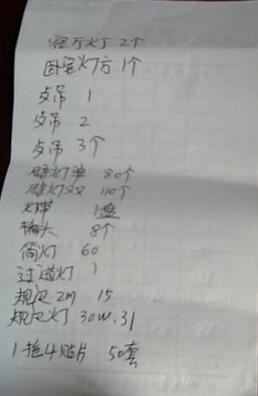 客厅灯 2个
卧室灯方 1个
吊 1
吊 2
吊 3个
壁灯单 80个
壁灯双 110个
灯带 1盘
插头 8个
筒灯 60
过道灯 1
2m 15
灯 30W.31
1拖4贴片 50套